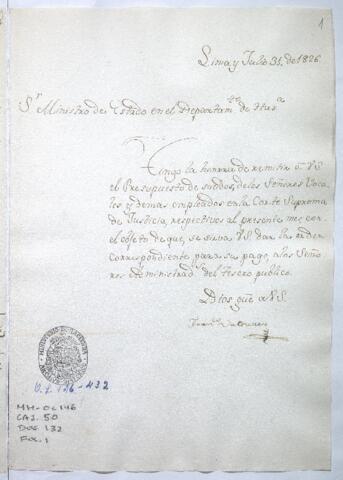 1
Lima y Julio 31. de 1826.
Sr. Ministro de Estado en el Departamto. de Hasa.
Tengo la honrra de remitir a VS
el Presupuesto de sueldos, de los Señores Voca-
les y demas empleados en la Corte Suprema
de Justicia, respectivos al presente mes, con
el objeto de que, se sirva VS. dar la orden
correspondiente, para su pago, a los Seño-
res Administrads. del tesoro publico.
Dios gue. a VS.
O.L. 146-432
MH-OL146
CAJ. 50
DOC. 132
FOL. 1